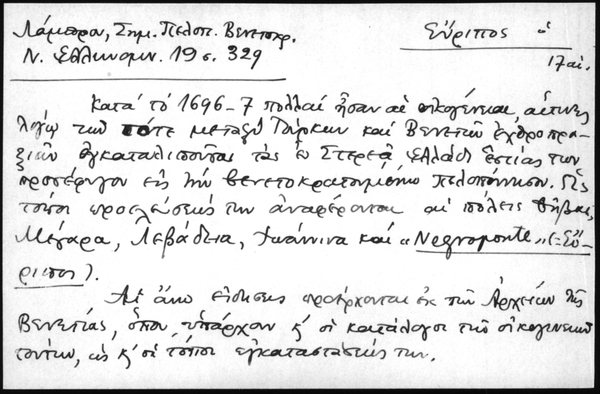 Λάμπρου, Σημ. Πελοπ. Βενετοκρ.
Ν. Ελληνομν. 19 σ. 329
Εὔριπος ὁ
17 αἰ.
Κατά τό 1696-7 πολλαί ἦσαν αἱ οἰκογένειαι, αἵτινες
λόγῳ τῶν τότε μεταξύ Τούρκων καί Βενετῶν ἐχθροπρα-
ξιῶν ἐγκαταλιποῦσαι τάς ἐν Στερεᾷ Ἑλλάδι ἑστίας των
προσέφυγον εἰς τήν βενετοκρατουμένην Πελοπόννησον. Ὡς
τόποι προελεύσεώς των ἀναφέρονται αἱ πόλεις Θῆβαι,
Μέγαρα, Λεβάδεια, Ἰωάννινα καί «Negroponte» (=Εὔ-
ριπος).
Αἱ ἄνω εἰδήσεις προέρχονται ἐκ τῶν Ἀρχείων τῆς
Βενετίας, ὅπου ὑπάρχουν κ' οἱ κατάλογοι τῶν οἰκογενειῶν
τούτων, ὡς κ' οἱ τόποι ἐγκαταστάσεώς των.